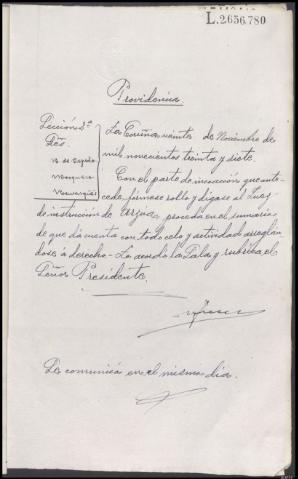 L.2656.780
Providencia
Sección 2ª
Sres.
La Coruña veinte de Noviembre de
mil novecientos treinta y siete.
Con el parte de incoación que ante-
cede, fórmese rollo y dígase al Juez
de instrucción de Arzua, proceda en el sumario
de que dá cuenta con todo celo y actividad arreglan
dose á derecho- Lo acordó la Sala y rubrica el
Señor Presidente.
Se comunicó en el mismo dia.